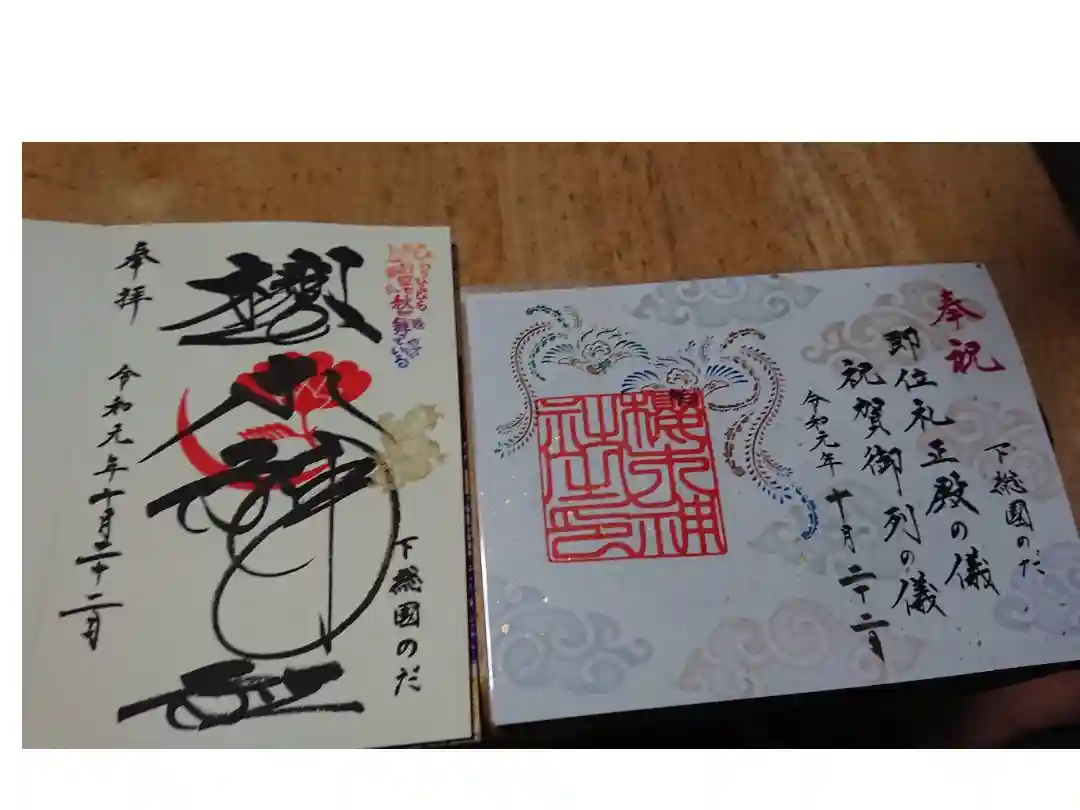 奉拝
櫻木神社
下総國のだ
令和元年十月二十二日
奉祝
下総國のだ
即位礼正殿の儀
祝賀御列の儀
令和元年十月二十二日
櫻木神
社之印